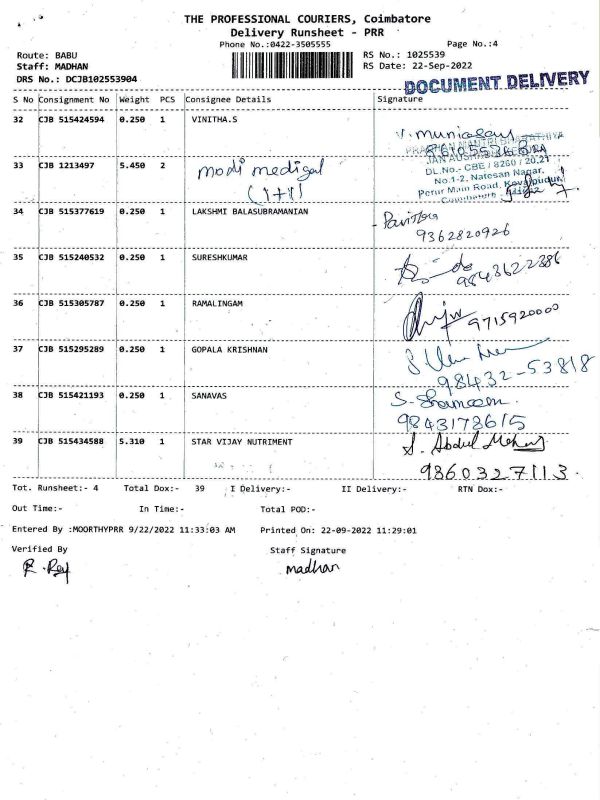 THE PROFESSIONAL COURIERS, Coimbatore
Delivery Runsheet - PRR
Phone No.:0422-3505555
Page No.:4
Route: BABU
RS No.: 1025539
Staff: MADHAN
RS Date: 22-Sep-2022
DRS No.: DCJB102553904
DOCUMENT DELIVERY
S No Consignment No Weight PCS Consignee Details Signature
32 CJB 515424594 0.250 1 VINITHA.S
V. Municasamy
33 CJB 1213497 5.450 2 modi medical
(1+1)
DL.No.- CBE / 8260 / 20,21
No.1-2, Natesan Nagar,
Perur Main Road, Kovaipudur,
34 CJB 515377619 0.250 1 LAKSHMI BALASUBRAMANIAN
Pavithra
9362820926
35 CJB 515240532 0.250 1 SURESHKUMAR
9843622386
36 CJB 515305787 0.250 1 RAMALINGAM
9715920000
37 CJB 515295289 0.250 1 GOPALA KRISHNAN
98432-53818
38 CJB 515421193 0.250 1 SANAVAS
S. Shameem
9843178615
39 CJB 515434588 5.310 1 STAR VIJAY NUTRIMENT
S. Abdul
9860327113.
Tot. Runsheet:- 4 Total Dox:- 39 I Delivery:- II Delivery:- RTN Dox:-
Out Time:- In Time:- Total POD:-
Entered By :MOORTHYPRR 9/22/2022 11:33:03 AM Printed On: 22-09-2022 11:29:01
Verified By Staff Signature
R. Raj madhan